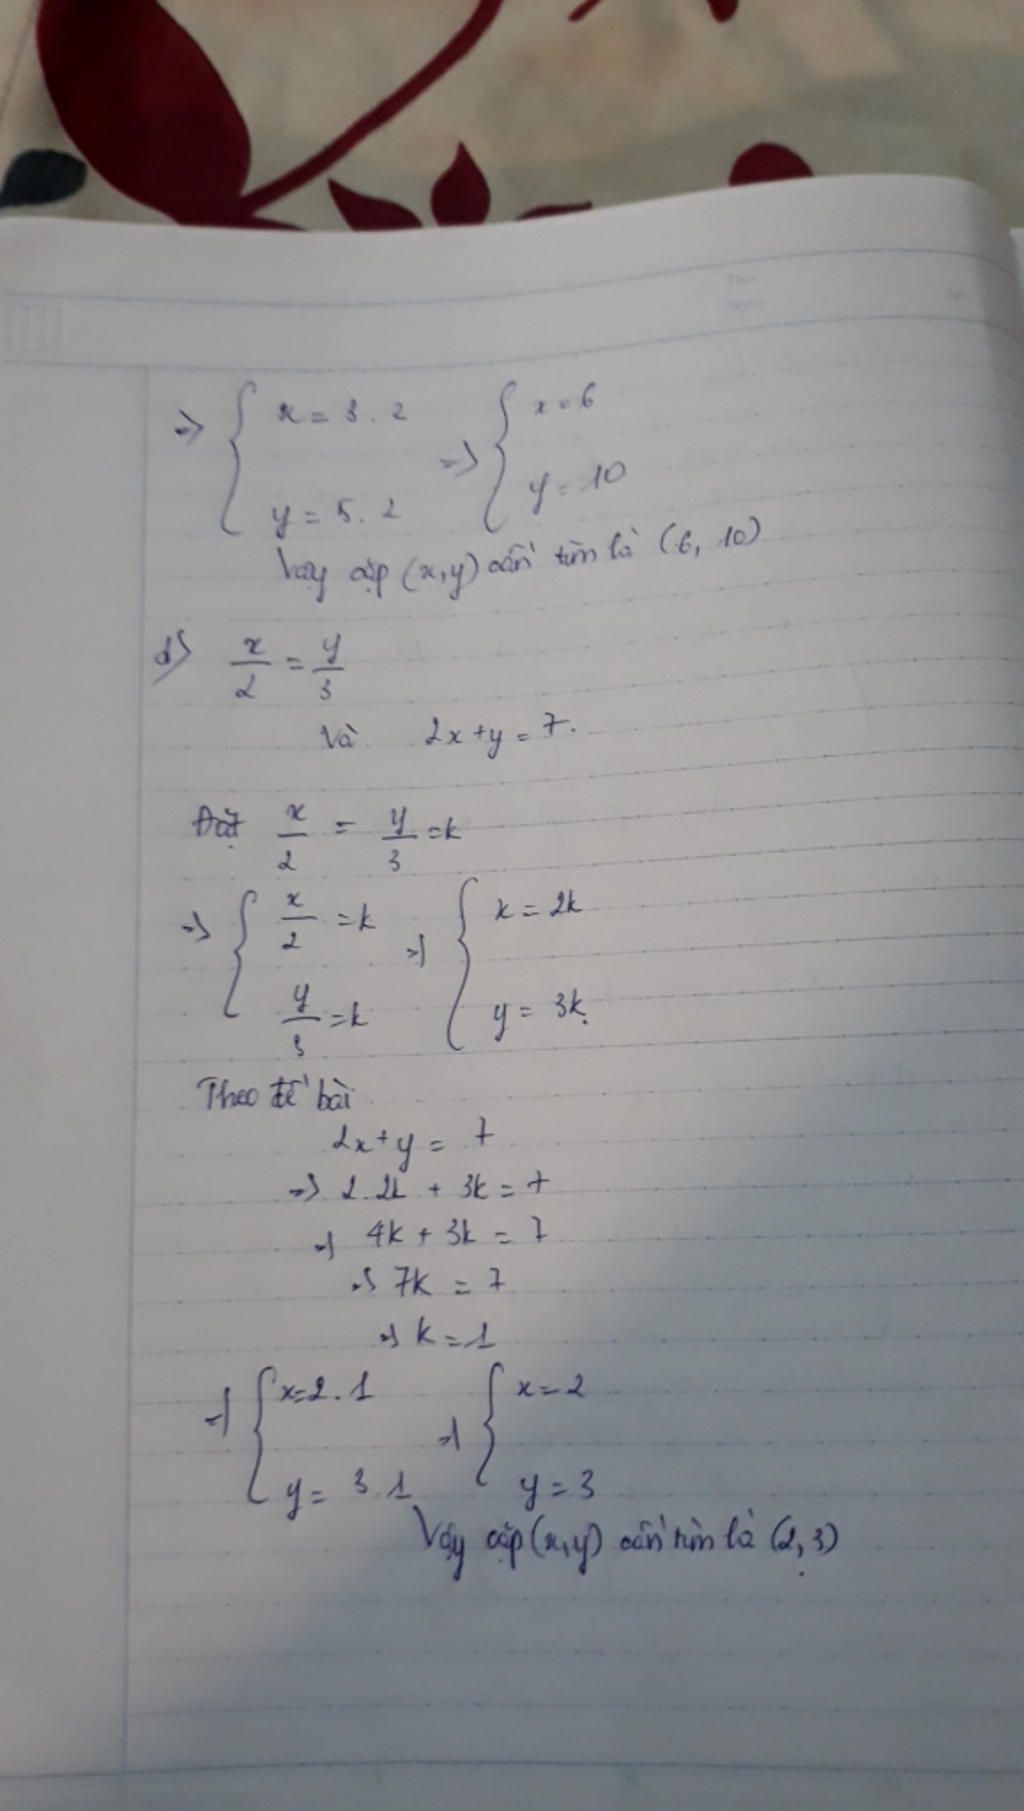 Thứ
Ngày
No.
=> { x = 3 . 2 => { x = 6
y = 5 . 2 y = 10
Vậy cặp (x,y) cần tìm là (6, 10)
d) x/2 = y/3
Và 2x + y = 7.
Đặt x/2 = y/3 = k
=> { x/2 = k => { x = 2k
y/3 = k y = 3k.
Theo đề bài
2x + y = 7
=> 2.2k + 3k = 7
=> 4k + 3k = 7
=> 7k = 7
=> k = 1
=> { x = 2 . 1 => { x = 2
y = 3 . 1 y = 3
Vậy cặp (x,y) cần tìm là (2, 3)